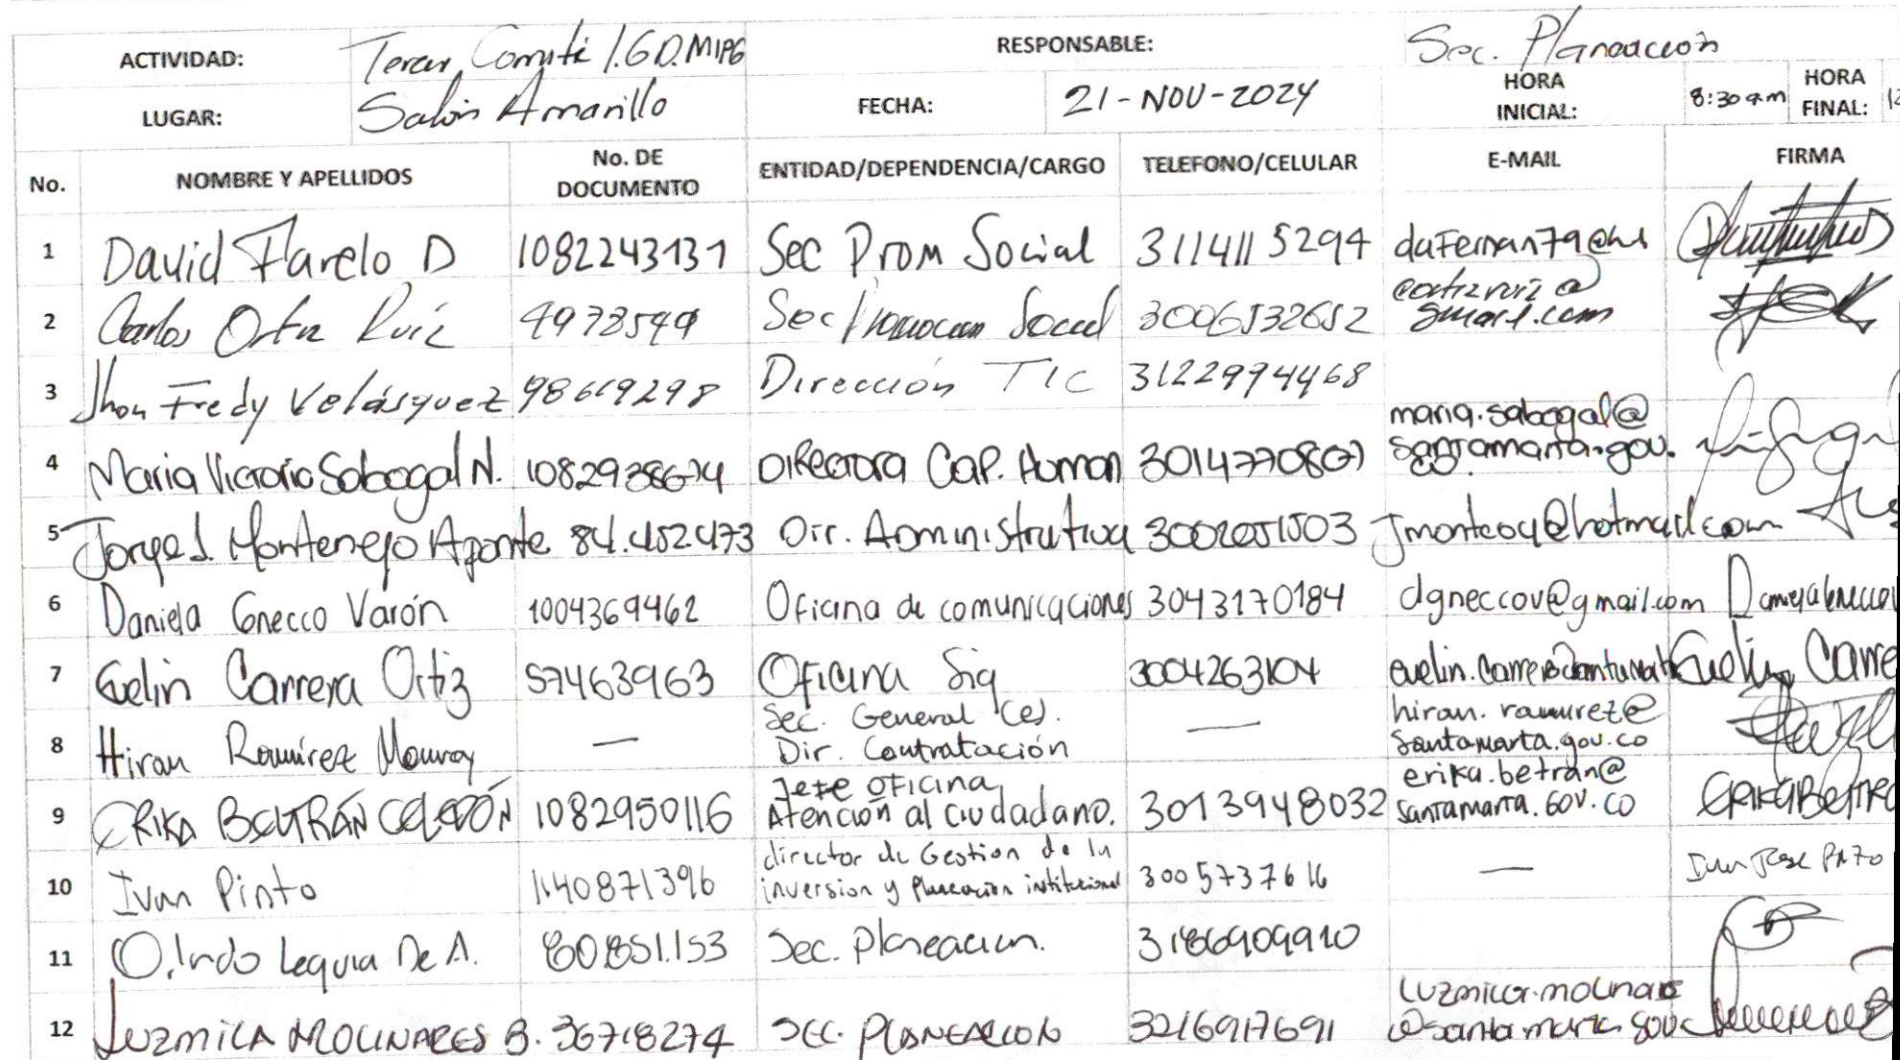 ACTIVIDAD: Tercer Comité I.G.D. MIPG RESPONSABLE: Sec. Planeación
LUGAR: Salón Amarillo FECHA: 21-NOV-2024 HORA INICIAL: 8:30 am HORA FINAL: 12
No. NOMBRE Y APELLIDOS No. DE DOCUMENTO ENTIDAD/DEPENDENCIA/CARGO TELEFONO/CELULAR E-MAIL FIRMA
1 David Farelo D 1082243131 Sec Prom Social 3114115294 daFernan79@
2 Carlos Ortiz Ruiz 4978549 Sec Promocion Social 3006532652 @gmail.com
3 Jhon Fredy Velásquez 98619298 Dirección TIC 3122994468
4 Maria Victoria Sabogal N. Directora Cap. Human maria.sabogal@santamarta.gov.co
5 Jorge L. Montenegro Aponte 84.452.473 Dir. Administrativa
6 Daniela Gnecco Varón 1004369462 Oficina de comunicaciones 3043170184 dgneccov@gmail.com Daniela Gnecco
7 Evelin Carrera Ortiz 57463963 Oficina Sig 3004263104 Evelin Carre
8 Hiran Ramírez Monroy — Sec. General (e). Dir. Contratación — hiran.ramirez@santamarta.gov.co
9 ERIKA BELTRÁN 1082950116 Jefe oficina Atención al Ciudadano. 3013948032 erika.betran@santamarta.gov.co ERIKA Beltrá
10 Ivan Pinto 1140871396 director de Gestion de la inversion y Planeación institucional 3005737616 — Ivan Jose Pinto
11 Sec. Planeacion. 3186909910
12 LUZMILA MOLINARES B. 36718274 SEC. PLANEACION 3216917691 luzmila.molinares@santamarta.gov.c